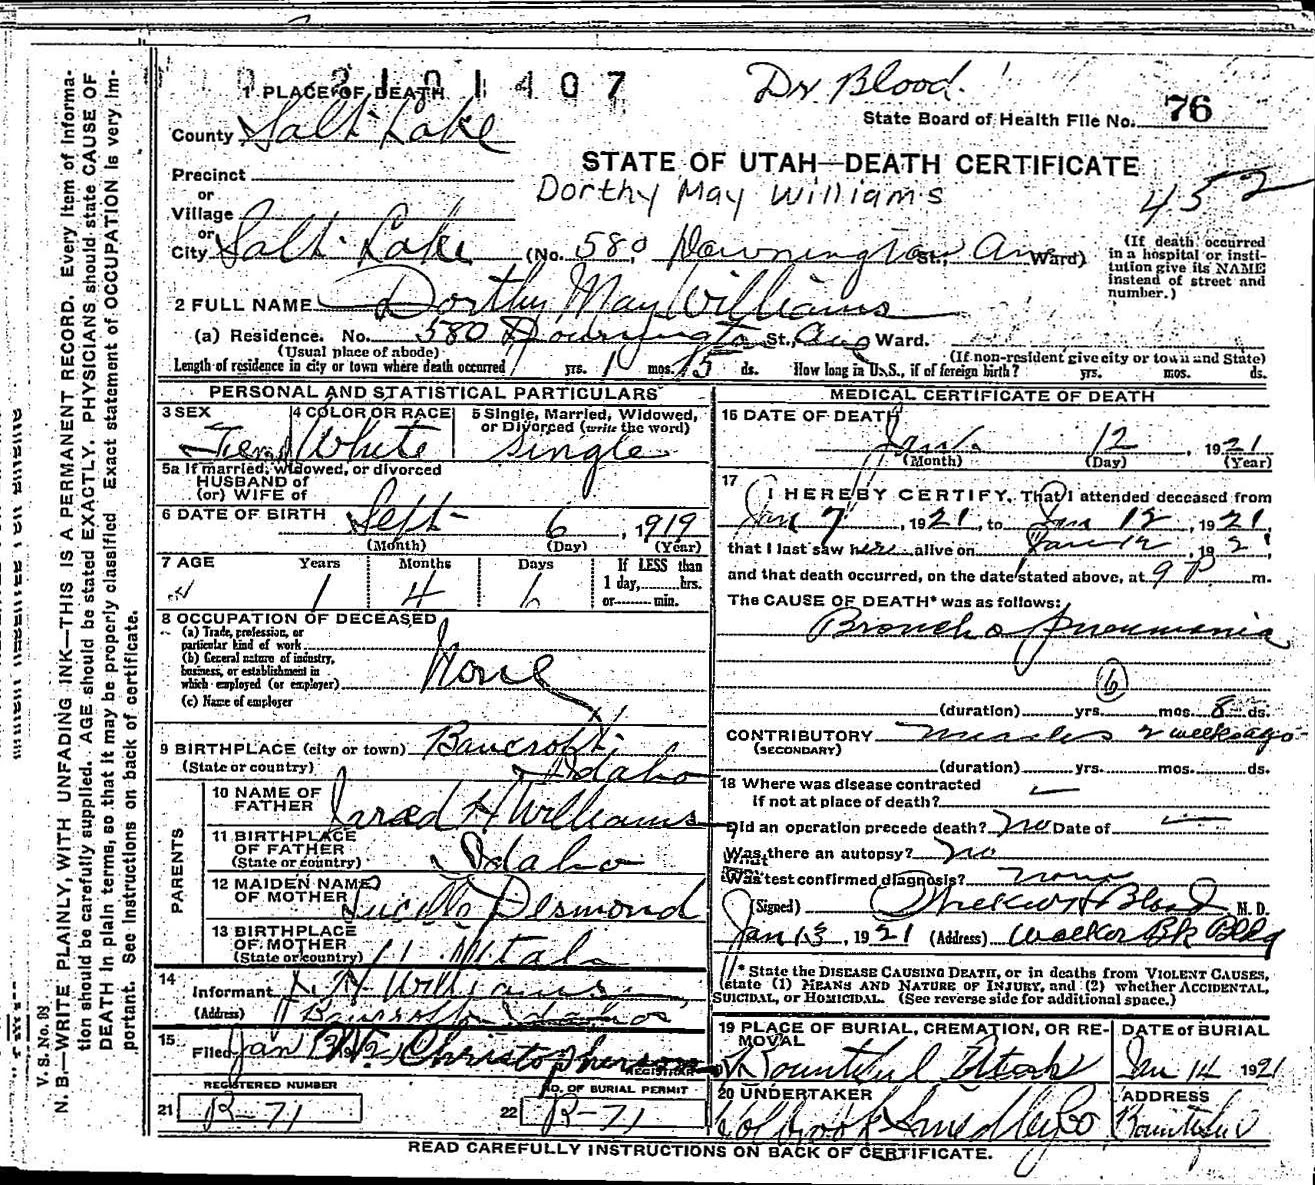 2101407
Dr. Blood.
1 PLACE OF DEATH
State Board of Health File No. 76
County Salt Lake
STATE OF UTAH—DEATH CERTIFICATE
Precinct
Dorthy May Williams
452
or
Village
or
City Salt Lake (No. 580 Downington St., Ave Ward)
(If death occurred in a hospital or institution give its NAME instead of street and number.)
2 FULL NAME Dorthy May Williams
(a) Residence. No. 580 Downington St., Ave Ward.
(Usual place of abode) (If non-resident give city or town and State)
Length of residence in city or town where death occurred yrs. 1 mos. 15 ds. How long in U.S., if of foreign birth? yrs. mos. ds.
PERSONAL AND STATISTICAL PARTICULARS
3 SEX Fem
4 COLOR OR RACE White
5 Single, Married, Widowed, or Divorced (write the word) single
5a If married, widowed, or divorced
HUSBAND of
(or) WIFE of
6 DATE OF BIRTH Sept 6, 1919
(Month) (Day) (Year)
7 AGE Years Months Days If LESS than
1 4 6 1 day, hrs.
or min.
8 OCCUPATION OF DECEASED
(a) Trade, profession, or
particular kind of work
(b) General nature of industry,
business, or establishment in
which employed (or employer) None
(c) Name of employer
9 BIRTHPLACE (city or town) Bancroft,
(State or country) Idaho
PARENTS
10 NAME OF FATHER Jared H Williams
11 BIRTHPLACE OF FATHER
(State or country) Idaho
12 MAIDEN NAME OF MOTHER Lucille Desmond
13 BIRTHPLACE OF MOTHER
(State or country) Utah
14
Informant J. H. Williams
(Address) Bancroft Idaho
15
Filed Jan Christopherson
REGISTRAR
REGISTERED NUMBER
21 R-71
NO. OF BURIAL PERMIT
22 R-71
MEDICAL CERTIFICATE OF DEATH
16 DATE OF DEATH
Jan. 12, 1921
(Month) (Day) (Year)
17
I HEREBY CERTIFY, That I attended deceased from
Jan 7, 1921, to Jan 12, 1921,
that I last saw her alive on Jan 12, 1921,
and that death occurred, on the date stated above, at 9 P m.
The CAUSE OF DEATH* was as follows:
Broncho pneumonia
6
(duration) yrs. mos. 8 ds.
CONTRIBUTORY measles 2 weeks ago
(SECONDARY)
(duration) yrs. mos. ds.
18 Where was disease contracted
if not at place of death? —
Did an operation precede death? no Date of —
Was there an autopsy? no
What test confirmed diagnosis? none
(Signed) Blood M. D.
Jan 13, 1921 (Address) Walker Bk Bldg
* State the DISEASE CAUSING DEATH, or in deaths from VIOLENT CAUSES,
state (1) MEANS AND NATURE OF INJURY, and (2) whether ACCIDENTAL,
SUICIDAL, or HOMICIDAL. (See reverse side for additional space.)
19 PLACE OF BURIAL, CREMATION, OR REMOVAL
Bountiful Utah
DATE of BURIAL
Jan 14 1921
20 UNDERTAKER
Holbrook Smedley Co
ADDRESS
Bountiful
READ CAREFULLY INSTRUCTIONS ON BACK OF CERTIFICATE.
V. S. No.
N. B.—WRITE PLAINLY, WITH UNFADING INK—THIS IS A PERMANENT RECORD. Every item of informa-
tion should be carefully supplied. AGE should be stated EXACTLY. PHYSICIANS should state CAUSE OF
DEATH in plain terms, so that it may be properly classified. Exact statement of OCCUPATION is very im-
portant. See instructions on back of certificate.